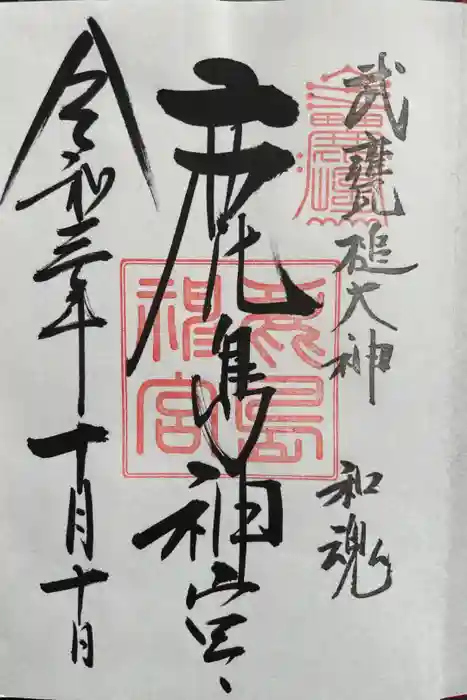 武甕槌大神 和魂
鹿島神宮
鹿島神宮
令和三年十月十日